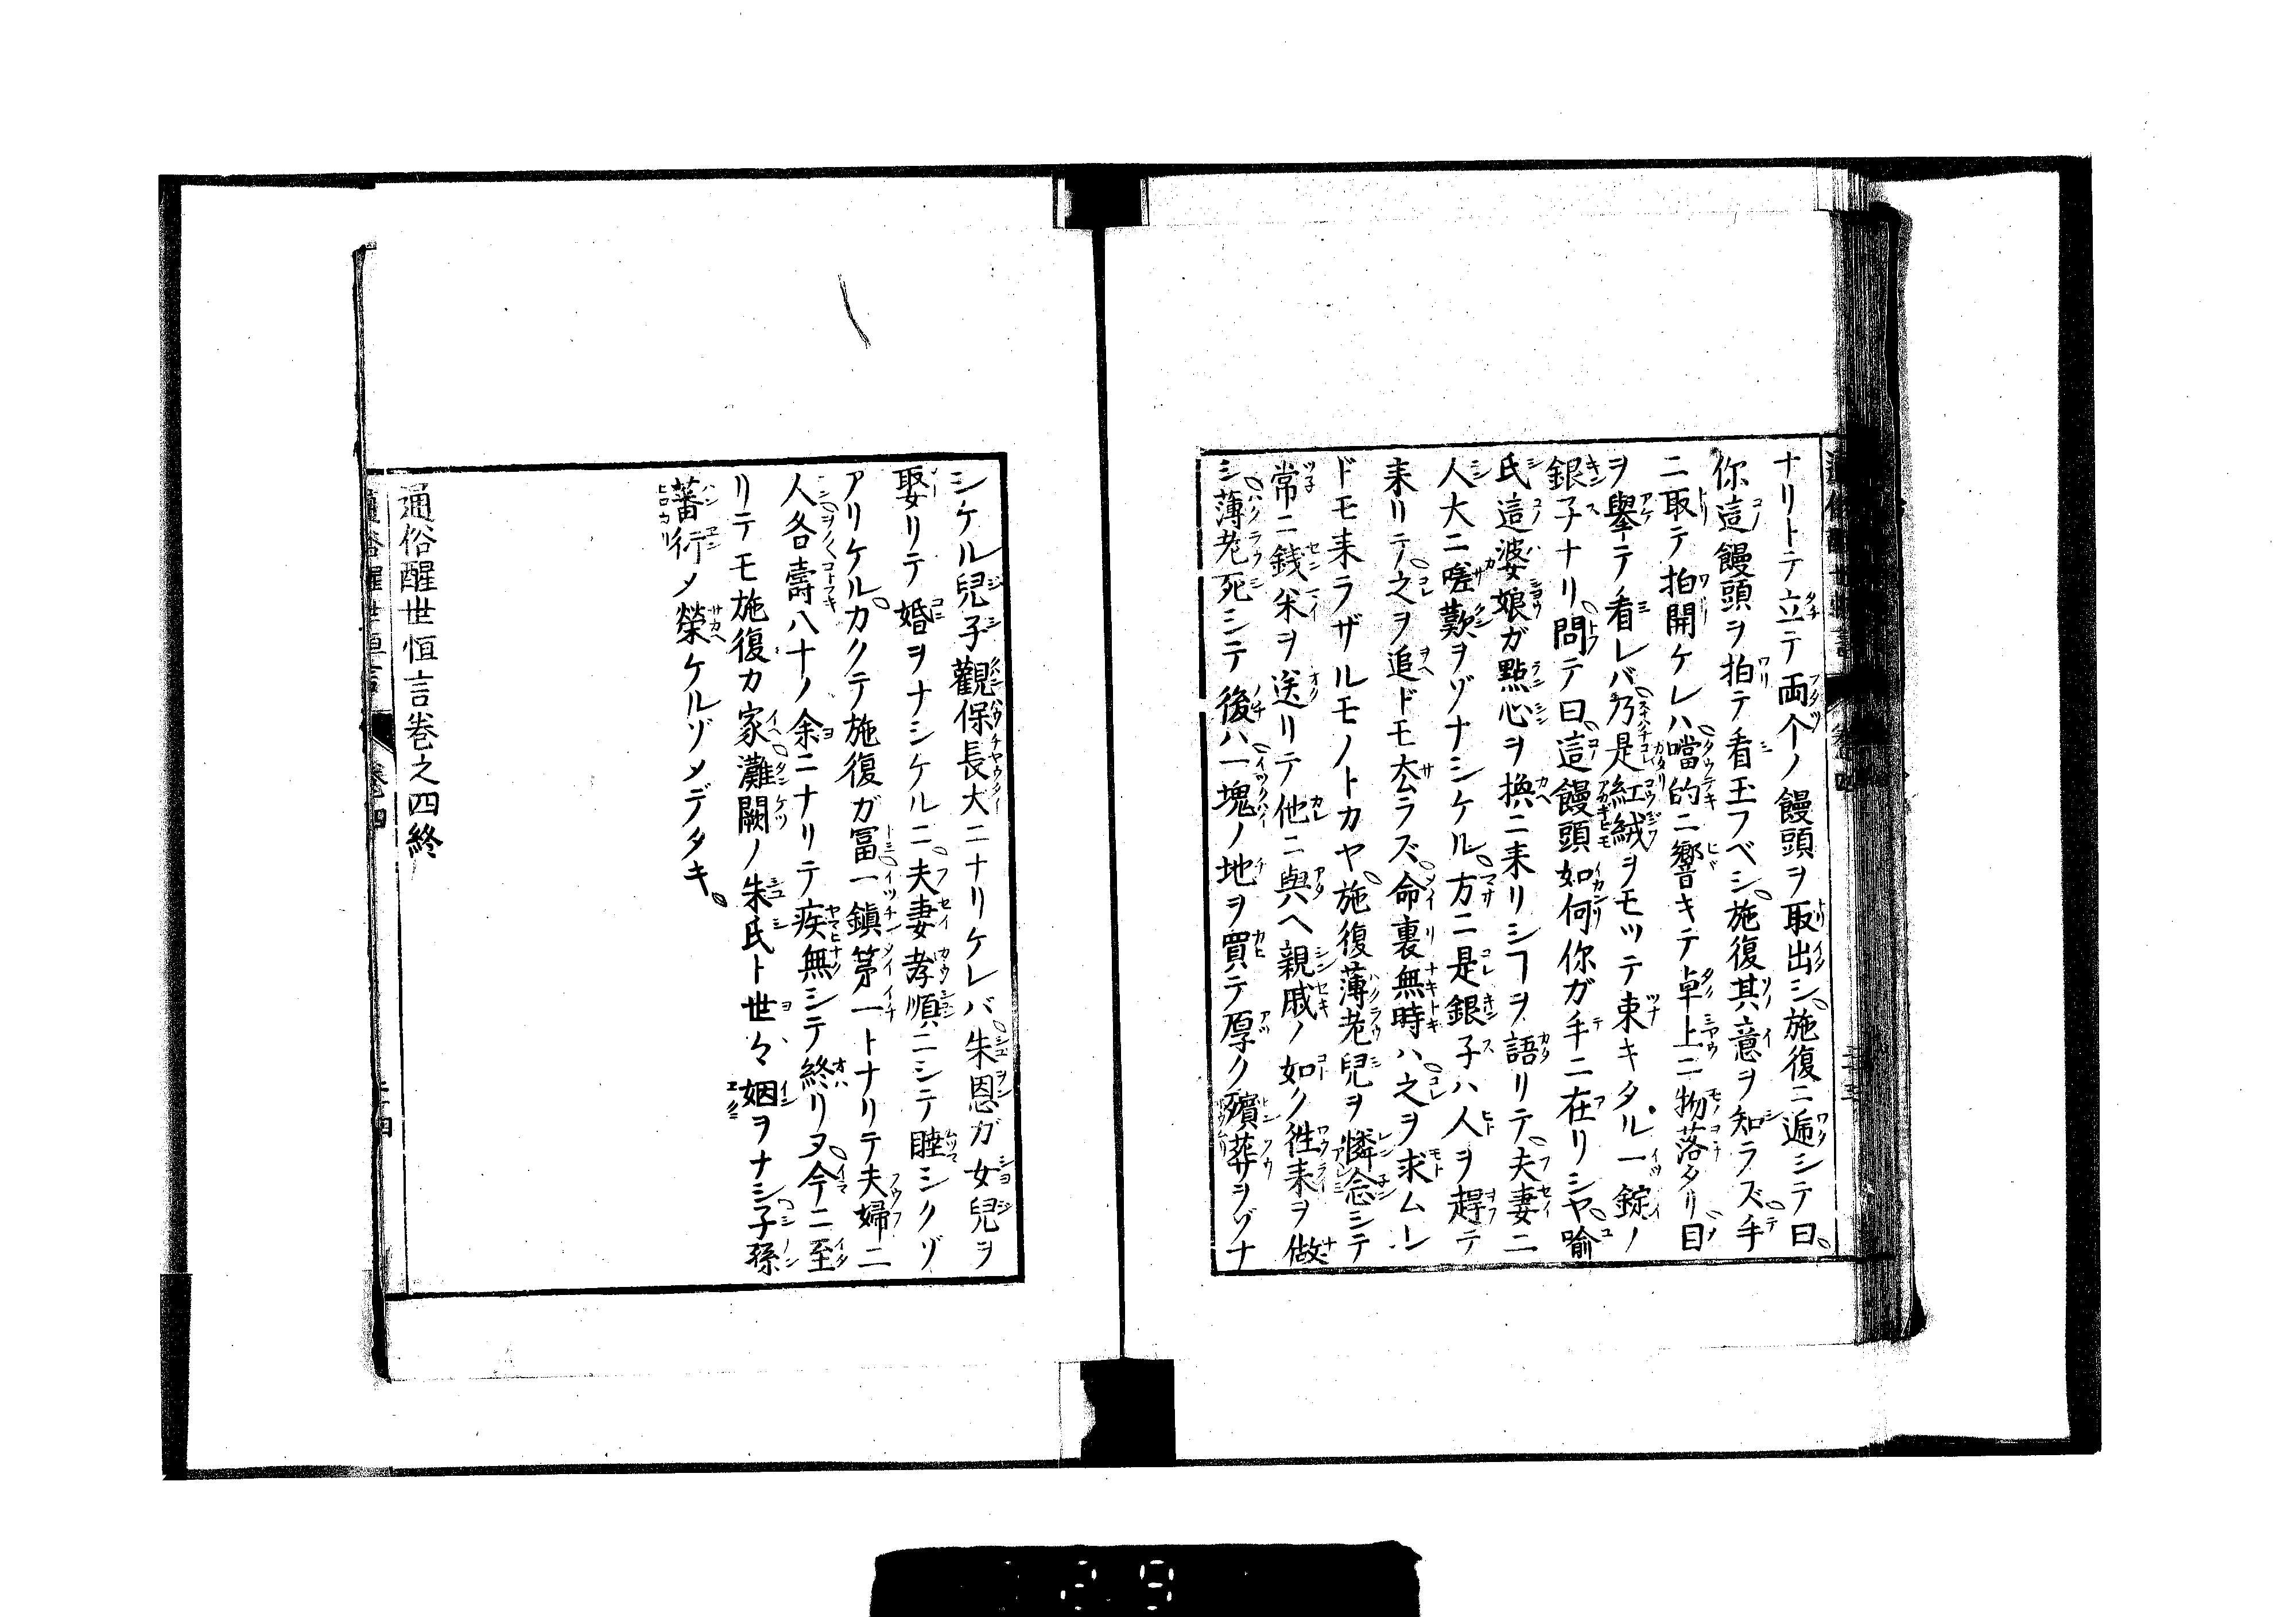 ナリトテ立テ両个ノ饅頭ヲ取出シ。施復ニ遍シテ曰。
你這饅頭ヲ拍テ看玉フベシ。施復其意ヲ知ラズ。手
ニ取テ拍開ケレハ。噹的ニ響キテ卓上ニ物落タリ。目
ヲ擧テ看レバ。乃是紅絨ヲモツテ束キタル一錠ノ
銀子ナリ。問テ曰。這饅頭如何你ガ手ニ在リシヤ。喩
氏這婆娘ガ點心ヲ換ニ来リシヿヲ語リテ。夫妻二
人大ニ嗟歎ヲゾナシケル。方ニ是銀子ハ人ヲ趕テ
来リテ。之ヲ追ドモ厺ラズ。命裏無時ハ。之ヲ求ムレ
ドモ来ラザルモノトカヤ。施復薄老兒ヲ憐念シテ
常ニ銭米ヲ送リテ他ニ與ヘ親戚ノ如ク徃来ヲ做
シ。薄老死シテ後ハ。一塊ノ地ヲ買テ厚ク殯葬ヲゾナ
シケル兒子觀保長大ニナリケレバ。朱恩ガ女兒ヲ
娶リテ婚ヲナシケルニ。夫妻孝順ニシテ睦シクゾ
アリケル。カクテ施復ガ冨。一鎭第一トナリテ夫婦二
人。各壽八十ノ余ニナリテ疾無シテ終リヌ。今ニ至
リテモ施復カ家。灘闕ノ朱氏ト世々姻ヲナシ。子孫
蕃衍〆榮ケルゾメデタキ。
通俗醒世恒言巻之四終
通俗醒世恒言 巻四